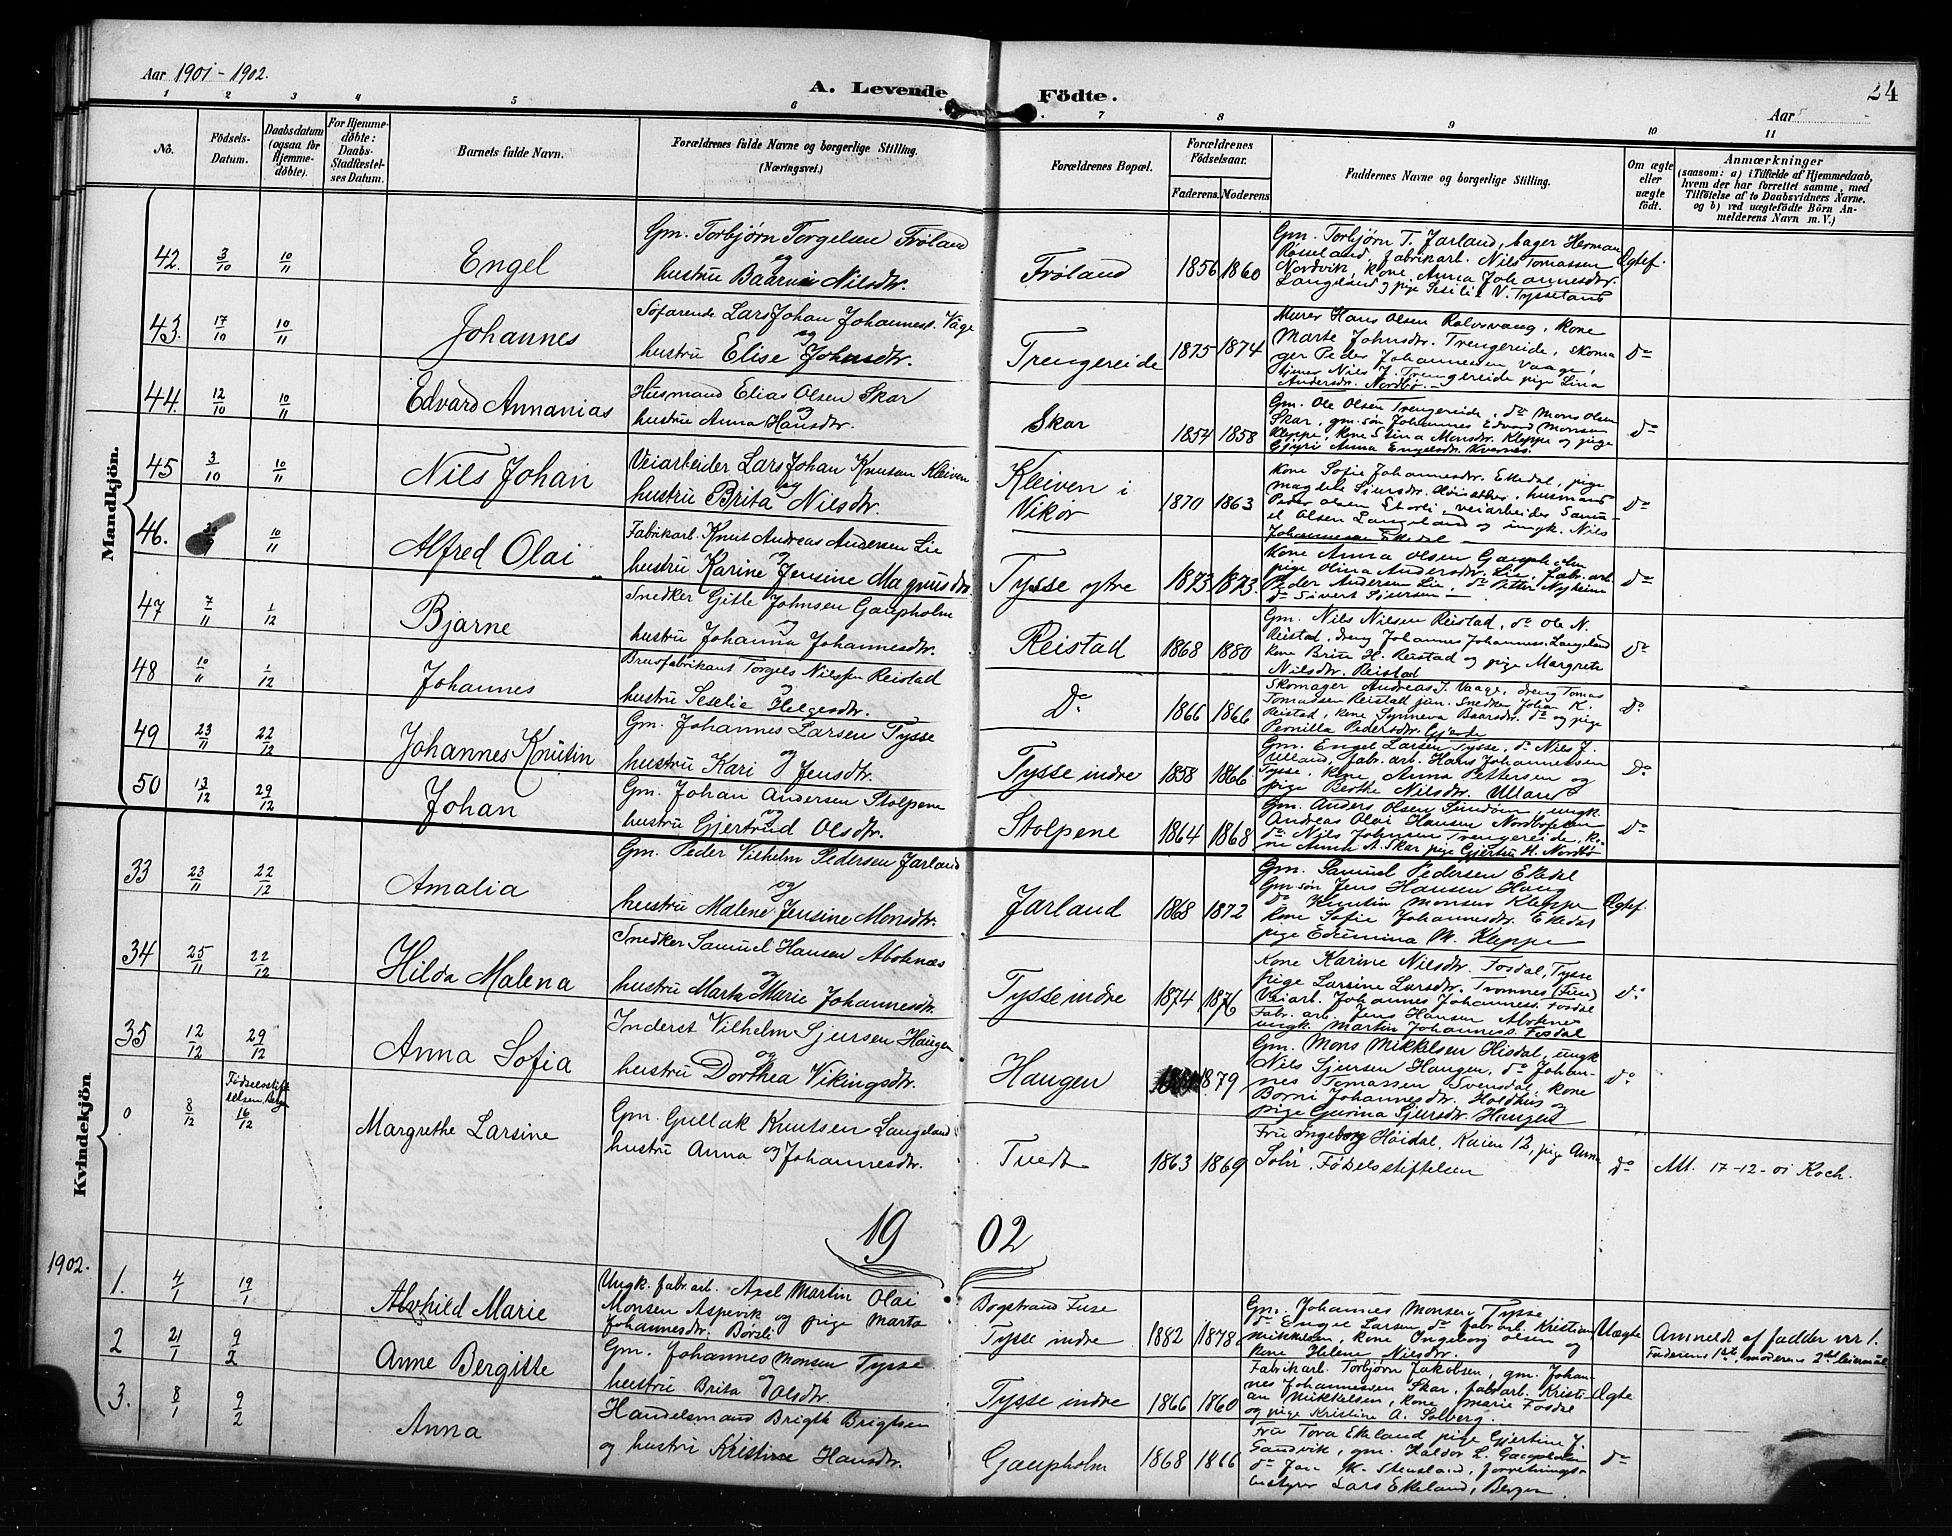 Aar 1901 - 1902.
A. Levende Födte.
24
Aar
1 2 3 4 5 6 7 8 9 10 11
No.
Födsels-Datum.
Daabsdatum (ogsaa for Hjemme-døbte).
For Hjemme-døbte: Daabs-Stadfæstel-ses Datum.
Barnets fulde Navn.
Forældrenes fulde Navne og borgerlige Stilling. (Næringsvei.)
Forældrenes Bopæl.
Forældrenes Fødselsaar.
Faderens. Moderens.
Faddernes Navne og borgerlige Stilling.
Om ægte eller uægte født.
Anmærkninger
(saasom: a) i Tilfælde af Hjemmedaab,
hvem der har forrettet samme, med
Tilføielse af to Daabsvidners Navne.
og b) ved uægtefødte Börn An-
melderens Navn m. V.)
Mandkjön.
42. 3/10 10/11 Engel
Gm. Torbjørn Torgelsen Frøland
og
hustru Nilsdtr.
Frøland 1856 1860
Gm. Torbjørn T. Jarland, bager Herman
Røsseland, fabrikarb. Nils Tomassen
Nordvik, kone Anna Johannesdtr.
Langeland og pige Sesilie V. Tysseland
Ægtef.
43. 17/10 10/11 Johannes
Söfarende Lars Johan Johanness. Våge
og
hustru Elise Johnsdtr.
Trengereide 1875 1874
Murer Hans Olsen Rolvsvaag, kone
Marte Johnsdtr. Trengereide, skoma
ger Peder Johannesen Vaage,
tjener Nils J. Trengereide pige Lina
Andersdtr. Nordbø.
do
44. 12/10 10/11 Edvard Annanias
Husmand Elias Olsen Skar
og
hustru Anna Hansdtr.
Skar 1854 1858
Gm. Ole Olsen Trengereide, do Mons Olsen
Skar, gm. søn Johannes Edvard Monsen
Kleppe, kone Stina Monsdtr. Kleppe og pige
Anna Engelsdtr. Kvernes.
do
45 3/10 10/11 Nils Johan
Veiarbeider Lars Johan Knutsen Kleiven
og
hustru Brita Nilsdtr.
Kleiven i
Vikør 1870 1863
Kone Sofie Johannesdtr. Ekedal, pige
Magtele Sjursdtr. husmand
Peder Olsen veiarbeider Samu-
el Olsen Langeland og ungk. Nils
Johannesen Ekedal
do
46. 10/11 Alfred Olai
Fabrikarb. Knut Andreas Andersen Lie
og
hustru Karine Jensine Magnusdtr.
Tysse ytre 1873 1873.
Kone Anna Olsen Gaupholm
pige Olina Andersdtr. Lie, fabr. arb.
Peder Andersen Lie, do Petter Nyheim
do Sivert Sjursen
do
47 7/11 1/12 Bjarne
Snedker Gitle Johnsen Gaupholm
og
hustru Johanna Johannesdtr.
Reistad 1868 1880
Gm. Nils Nilsen Reistad, do Ole N.
Reistad, dreng Johannes Johanness. Langeland
kone Brita H. Reistad og pige Margrete
Nilsdtr. Reistad
do
48 10/11 1/12 Johannes
Brusfabrikant Torgels Nilssen Reistad
og
hustru Seselie Helgesdtr.
Do 1866 1866
Skomager Andreas J. Vaage, dreng Tomas
Tomassen Reistad jun. Snedker Johan K.
Reistad, kone Synneva Baarsdtr. do og pige
Pernilla Pedersdtr. Gjerde
do
49 23/11 22/12 Johannes Knutin
Gm. Johannes Larsen Tysse
og
hustru Kari Jensdtr.
Tysse indre 1858 1866
Gm. Engel Larsen Tysse, do Nils J.
Ulland, fabr. arb. Hans Johannessen
Tysse, kone, Anna Pettersen og
pige Berthe Nilsdtr. Ulland
do
50 13/12 29/12 Johan
Gm. Johan Andersen Stolpene
og
hustru Gjertrud Olsdtr.
Stolpene 1864 1868
Gm. Anders Olsen ungk.
Andreas Olai Hansen
do Nils Johnsen Trengereide, ko-
ne Anna A. Skar pige Gjertru H. Nordbø
do
Kvindekjön
33 23/11 22/12 Amalia
Gm. Peder Vilhelm Pedersen Jarland
og
hustru Malene Jensine Monsdtr.
Jarland 1868 1872
Gm. Samuel Pedersen Ekedal
Gm søn Jens Hansen Haug
do Knutin Monsen Kleppe
kone Sofie Johannesdtr. Ekedal
pige M. Kleppe
Ægtef.
34 25/11 22/12 Hilda Malena
Snedker Samuel Hansen Aboknes
og
hustru Marta Marie Johannesdtr.
Tysse indre 1874 1876
Kone Karine Nilsdtr. Fosdal, Tysse
pige Larsine Larsdtr. Tromnes (Fuse)
Veiarb. Johannes Johanness. Fosdal
Fabr. arb. Jens Hansen Aboknes
ungk. Martin Johanness. Fosdal
do
35 12/12 29/12 Anna Sofia
Inderst Vilhelm Sjursen Haugen
og
hustru Dorthea Vikingsdtr.
Haugen 1879
Gm. Mons Mikkelsen Hisdal, ungk
Nils Sjursen Haugen, do Johan-
nes Tomassen Svensdal, kone
Borni Johannesdtr. Holdhus og
pige Gurina Sjursdtr. Haugen
do
0 8/12 16/12 Margrethe Larsine
Gm. Gullak Knutsen Langeland
hustru Anna og Johannesdtr.
Tvedt 1863 1869
Fru Ingeborg Høidal, Kaien 12, pige Anna
Solvi. Födselsstiftelsen
do
Att. 17-12-01 Koch.
19 02
1902.
1. 4/1 19/1 Alvhild Marie
Ungk. fabr. arb. Axel Martin Olai
Monsen Aspevik og pige Marta
Johannesdtr. Børsli
Bogstrand Fuse
Tysse indre 1882 1878
Gm. Johannes Monsen Tysse
do Engel Larsen do fabr. arb. Kristian
Mikkelsen, kone Ingeborg Olsen og
kone Helene Nilsdtr.
Uægte
Anmeldt af fadder nr 1.
Faderens 1ste, moderens 2det leiermål
2 21/1 9/2 Anne Bergitte
Gm. Johannes Monsen Tysse
hustru Brita og Olsdtr.
Tysse indre 1866 1860
Fabrikarb. Torbjørn Jakobsen, gm. Johan-
nes Johannessen Skar, fabr. arb. Kristi-
an Mikkelsen, kone Marie Fosdal
og pige Kristine A. Solberg.
Ægte
3. 8/1 9/2 Anna
Handelsmand Brigth Brigtsen
og hustru Kristine Hansdtr.
Gaupholm 1868 1866
Fru Tora Ekeland pige Gjertine J.
Sandvik, gm. Haldor L. Gaupholm
do Jan K. Stensland, forretnings-
bestyrer Lars Ekeland, Bergen.
do